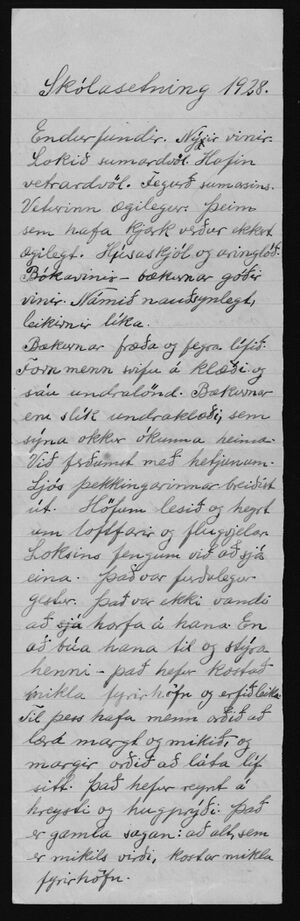 Skólasetning 1928.
Endurfundir. Nýir vinir.
Lokið sumardvöl. Hafin
vetrardvöl. Fegurð sumarsins.
Veturinn ægilegur. Þeim
sem hafa kjark verður ekkert
ægilegt. Húsaskjól og aringlóð.
Bókavinir – bækurnar góðir
vinir. Námið nauðsynlegt,
leikirnir líka.
Bækurnar fræða og fegra lífið.
Fornmenn svifu á klæði og
sáu undralönd. Bækurnar
eru slík undraklæði, sem
sýna okkur ókunna heima.
Við ferðumst með hetjunum.
Ljós þekkingarinnar breiðist
út. Höfum lesið og heyrt
um loftfarir og flugvjelar.
Loksins fengum við að sjá
eina. Það var furðulegur
gestur. Það var ekki vandi
að sjá horfa á hana. En
að búa hana til og stýra
henni – það hefur kostað
mikla fyrirhöfn og erfiðleika.
Til þess hafa menn orðið að
læra margt og mikið, og
margir orðið að láta líf
sitt. Það hefur reynt á
hreysti og hugprýði. Það
er gamla sagan: að alt, sem
er mikils virði, kostar mikla
fyrirhöfn.